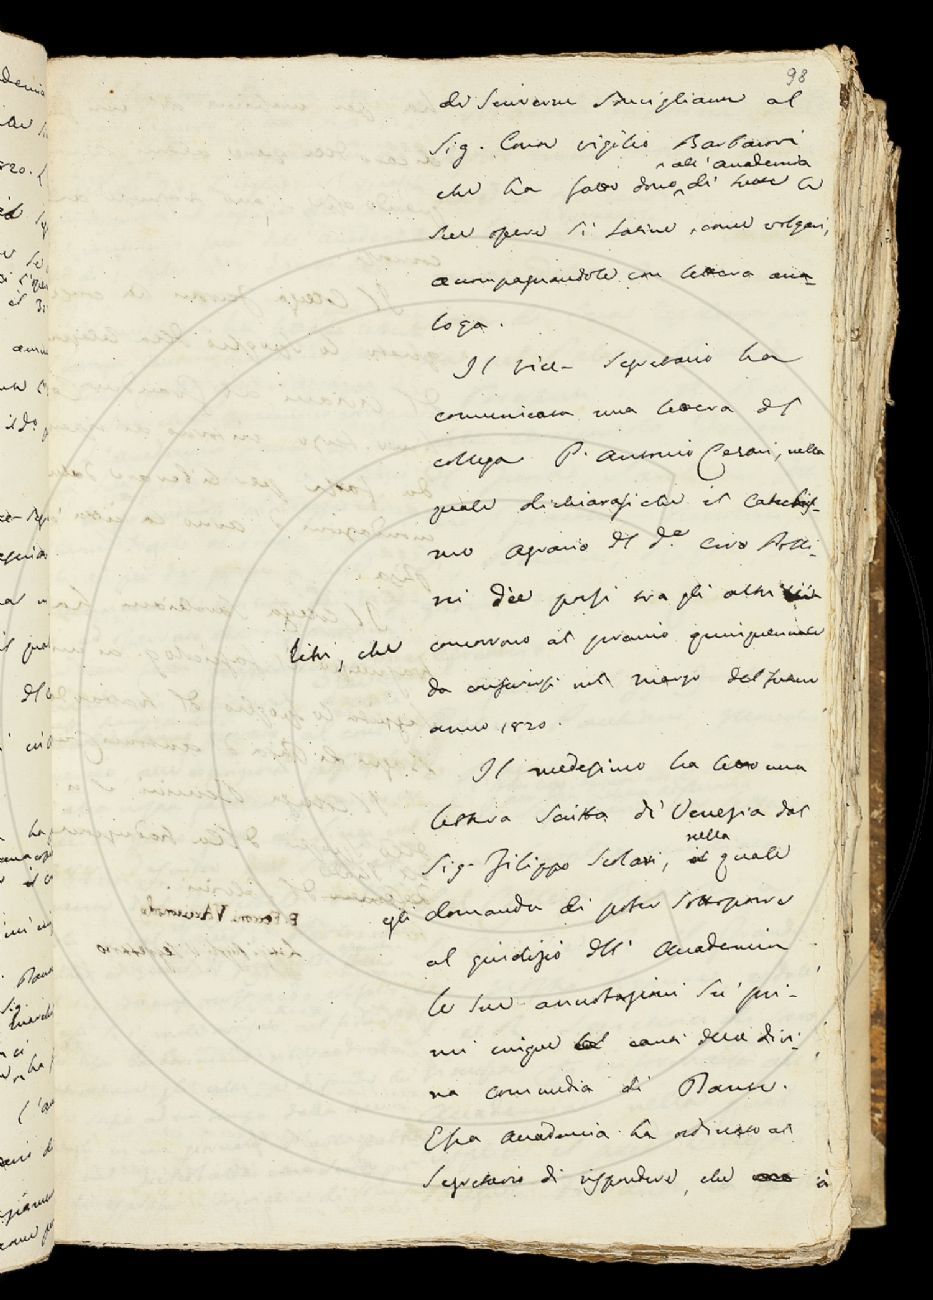 98
di scrivere Sucigliano al
Sig. Conte vigilio Barbacovi
che ha fatto dono all'Accademia di tutte le
sue opere sì latine, come volgari,
accompagnandole con lettera ana-
loga.
Il vice-Segretario ha
comunicata una lettera del
collega P. Antonio Cesari, nella
quale dichiarasi che il Catechis-
mo Agrario del d.e Ciro Polli-
ni dee porsi tra gli altri
libri, che concorrono al premio quinquennale
da conferirsi nel marzo del futuro
anno 1820.
Il medesimo ha letto una
lettera scritta di Venezia dal
Sig. Filippo Scolari, nella quale
egli domanda di poter sottoporre
al giudizio dell'Accademia
le sue annotazioni su' pri-
mi cinque canti della divi-
na commedia di Dante.
Essa Accademia ha ordinato al
Segretario di rispondere, che